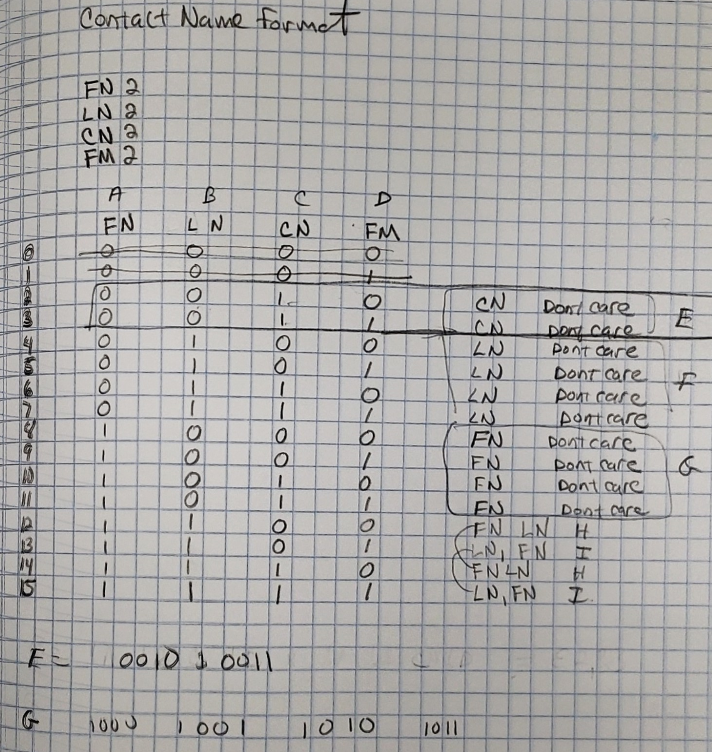 Contact Name Format
FN 2
LN 2
CN 2
FM 2
A B C D
FN LN CN FM
0 0 0 0 0
1 0 0 0 1
2 0 0 1 0 CN Dont care
3 0 0 1 1 CN Dont care E
4 0 1 0 0 LN Dont care
5 0 1 0 1 LN Dont care F
6 0 1 1 0 LN Dont care
7 0 1 1 1 LN Dont care
8 1 0 0 0 FN Dont care
9 1 0 0 1 FN Dont care G
10 1 0 1 0 FN Dont care
11 1 0 1 1 FN Dont care
12 1 1 0 0 FN LN H
13 1 1 0 1 LN, FN I
14 1 1 1 0 FN LN H
15 1 1 1 1 LN, FN I
E = 0010 0011
G 1000 1001 1010 1011